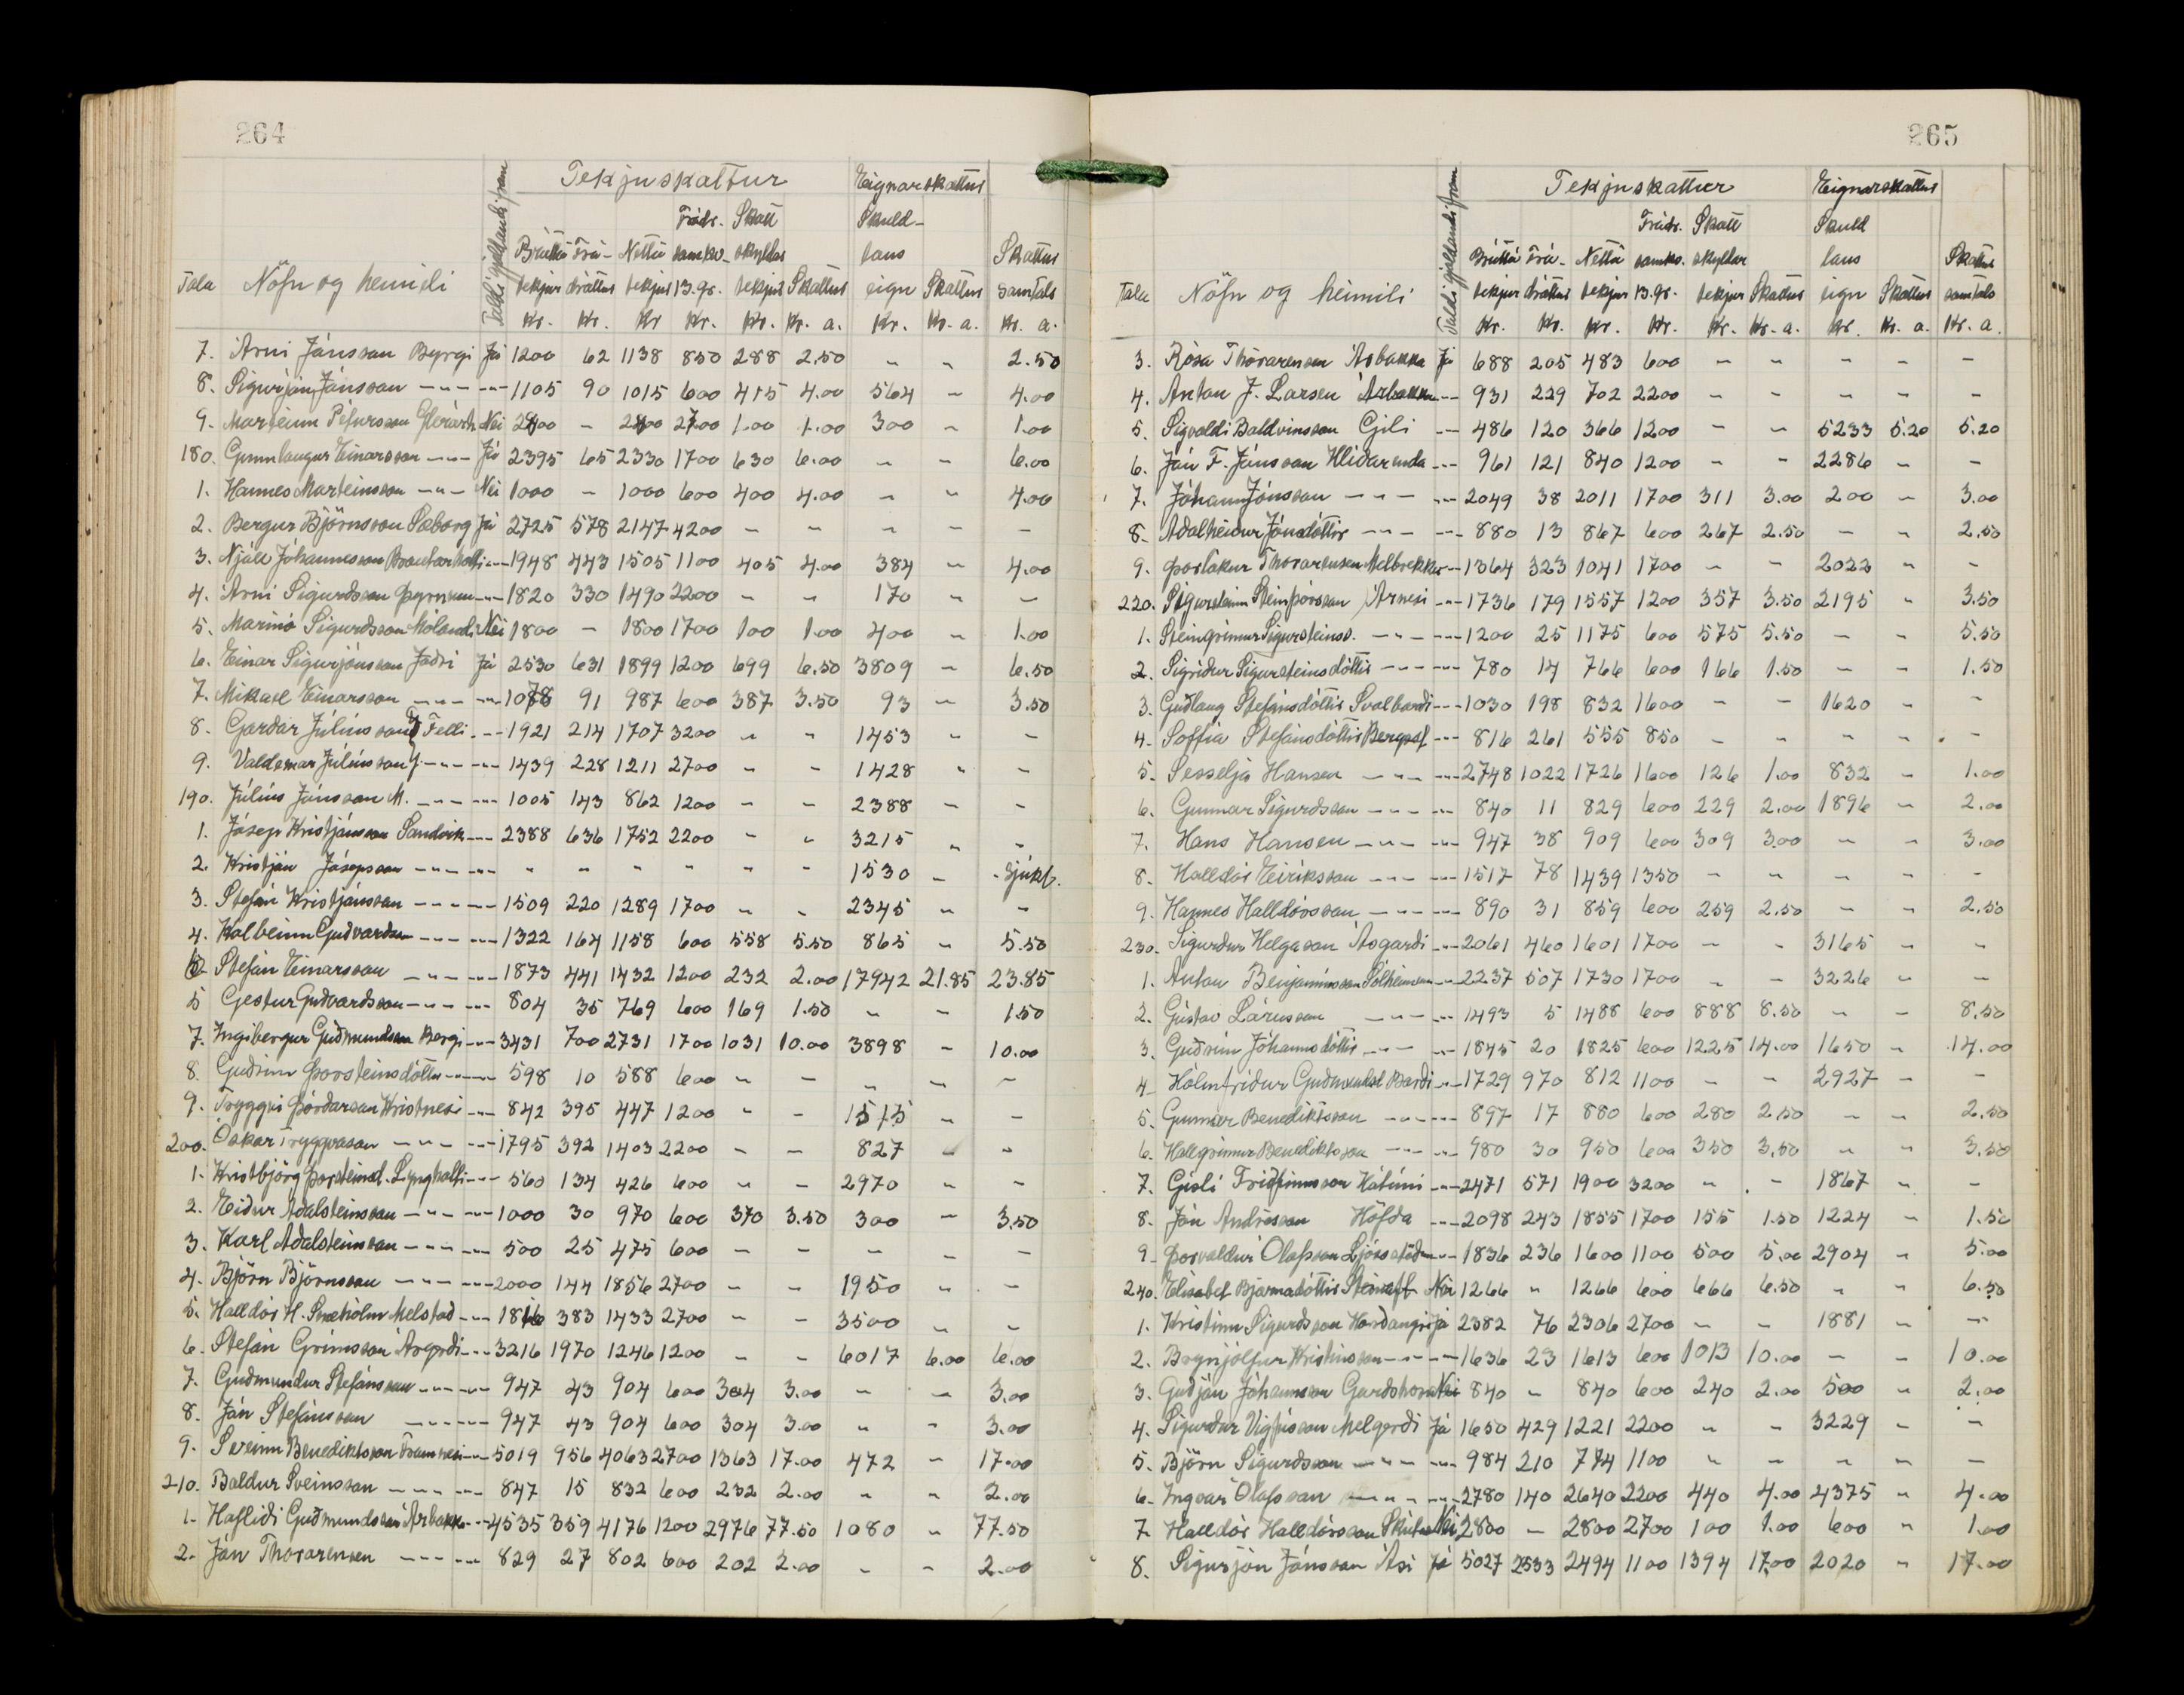 264
Tekjuskattur Eignarskattur
Tala Nöfn og heimili Taldi gjaldandi fram Brúttó tekjur Kr. Frádráttur Kr. Nettó tekjur Kr Frádr. samkv. 13.gr. Kr. Skatt skyldar tekjur Kr. Skattur Kr. a. Skuldlaus eign Kr. Skattur Kr. a. Skattur samtals Kr. a.
7. Árni Jónsson Byrgi Já 1200 62 1138 850 288 2.50 " " 2.50
8. Sigurjón Jónsson -"- -"- 1105 90 1015 600 415 4.00 564 " 4.00
9. Marteinn Pétursson Nei 2800 - 2800 2700 1.00 1.00 300 " 1.00
180. Gunnlaugur Einarsson -"- Já 2395 65 2330 1700 630 6.00 " " 6.00
1. Hannes Marteinsson -"- Nei 1000 - 1000 600 400 4.00 " " 4.00
2. Bergur Björnsson Sæborg Já 2725 578 2147 4200 - - - - -
3. Njáll Jóhannesson -"- 1948 443 1505 1100 405 4.00 384 " 4.00
4. Árni Sigurdsson Þyrnum -"- 1820 330 1490 2200 - - 170 " -
5. Marinó Sigurdsson Mólandi Nei 1800 - 1800 1700 100 1.00 400 " 1.00
6. Einar Sigurjónsson Jadri Já 2530 631 1899 1200 699 6.50 3809 " 6.50
7. Mikael Einarsson -"- -"- 1078 91 987 600 387 3.50 93 " 3.50
8. Gardar Júlíusson Felli -"- 1921 214 1707 3200 " " 1453 " -
9. Valdemar Júlíusson -"- -"- 1439 228 1211 2700 " - 1428 " -
190. Júlíus Jónsson M. -"- -"- 1005 143 862 1200 " - 2388 - -
1. Jósep Kristjánsson Sandvík -"- 2388 636 1752 2200 - " 3215 " "
2. Kristján Jósepsson -"- -"- " " " " " " 1530 " - Sjúkl.
3. Stefán Kristjánsson -"- -"- 1509 220 1289 1700 " " 2345 " -
4. Kolbeinn Gudvardsson -"- -"- 1322 164 1158 600 558 5.50 865 " 5.50
Stefán Einarsson -"- -"- 1873 441 1432 1200 232 2.00 17942 21.85 23.85
5 Gestur Gudvardsson -"- -"- 804 35 769 600 169 1.50 " " 1.50
7. Ingibergur Guðmundsson Bergi -"- 3431 700 2731 1700 1031 10.00 3898 - 10.00
8. Guðrún Þorsteinsdóttir -"- -"- 598 10 588 600 " - " - -
9. Tryggvi Þórdarson Kristnesi -"- 842 395 447 1200 " - 1515 " -
200. Óskar Tryggvason -"- -"- 1795 392 1403 2200 - - 827 - "
1. Kristbjörg Þorsteinsd. Lyngholti -"- 560 134 426 600 " - 2970 " -
2. Eidur Adalsteinsson -"- -"- 1000 30 970 600 370 3.50 300 - 3.50
3. Karl Adalsteinsson -"- -"- 500 25 475 600 - - - - -
4. Björn Björnsson -"- -"- 2000 144 1856 2700 - - 1950 " -
5. Halldór H. Snæhólm Melstad -"- 1816 383 1433 2700 - - 3500 " "
6. Stefán Grímsson Ásgrdi -"- 3216 1970 1246 1200 - - 6017 6.00 6.00
7. Guðmundur Stefánsson -"- -"- 947 43 904 600 304 3.00 " - 3.00
8. Jón Stefánsson -"- -"- 947 43 904 600 304 3.00 " - 3.00
9. Sveinn Benediktsson Framnesi -"- 5019 956 4063 2700 1363 17.00 472 - 17.00
210. Baldur Sveinsson -"- -"- 847 15 832 600 232 2.00 " " 2.00
1. Haflidi Guðmundsson Árbakka -"- 4535 359 4176 1200 2976 77.50 1080 " 77.50
2. Jón Thorarensen -"- -"- 829 27 802 600 202 2.00 - - 2.00
265
Tekjuskattur Eignarskattur
Tala Nöfn og heimili Taldi gjaldandi fram Brúttó tekjur Kr. Frádráttur Kr. Nettó tekjur Kr. Frádr. samkv. 13.gr. Kr. Skatt skyldar tekjur Kr. Skattur Kr. a. Skuld laus eign Kr. Skattur Kr. a. Skattur samtals Kr. a.
3. Rósa Thorarensen Árbakka Já 688 205 483 600 - - - - -
4. Anton J. Larsen Árbakka -"- 931 229 702 2200 - - - - -
5. Sigvaldi Baldvinsson Gili -"- 486 120 366 1200 - - 5233 5.20 5.20
6. Jón F. Jónsson Hlídarenda -"- 961 121 840 1200 - - 2286 " -
7. Jóhann Jónsson -"- -"- 2049 38 2011 1700 311 3.00 200 - 3.00
8. Adalheidur Jónsdóttir -"- -"- 880 13 867 600 267 2.50 - " 2.50
9. Þorlákur Thorarensen Melbrekku -"- 1364 323 1041 1700 - - 2022 " -
220. Sigursteinn Steinþórsson Árnesi -"- 1736 179 1557 1200 357 3.50 2195 " 3.50
1. Steingrímur Sigursteinss. -"- -"- 1200 25 1175 600 575 5.50 - " 5.50
2. Sigrídur Sigursteinsdóttir -"- -"- 780 14 766 600 166 1.50 - " 1.50
3. Gudlaug Stefánsdóttir Svalbardi -"- 1030 198 832 1600 - - 1620 " -
4. Soffía Stefánsdóttir -"- 816 261 555 850 - " " " -
5. Sesselja Hansen -"- -"- 2748 1022 1726 1600 126 1.00 832 - 1.00
6. Gunnar Sigurdsson -"- -"- 840 11 829 600 229 2.00 1896 " 2.00
7. Hans Hansen -"- -"- 947 38 909 600 309 3.00 - " 3.00
8. Halldór Eiríksson -"- -"- 1517 78 1439 1350 - " " " -
9. Hannes Halldórsson -"- -"- 890 31 859 600 259 2.50 " " 2.50
230. Sigurður Helgason Ásgardi -"- 2061 460 1601 1700 - - 3165 " "
1. Anton Benjamínsson Sólheimum -"- 2237 507 1730 1700 " - 3226 " -
2. Gústav Lárusson -"- -"- 1493 5 1488 600 888 8.50 " - 8.50
3. Guðrún Jóhannsdóttir -"- -"- 1845 20 1825 600 1225 14.00 1650 " 14.00
4. Hólmfríður Guðmundsd. Bardi -"- 1729 970 812 1100 - - 2927 - -
5. Gunnar Benediktsson -"- -"- 897 17 880 600 280 2.50 " " 2.50
6. Hallgrímur Benediktsson -"- -"- 980 30 950 600 350 3.50 " " 3.50
7. Gísli Friðfinnsson Hátúni -"- 2471 571 1900 3200 " - 1867 " -
8. Jón Andrésson Höfda -"- 2098 243 1855 1700 155 1.50 1224 - 1.50
9. Þorvaldur Ólafsson -"- 1836 236 1600 1100 500 5.00 2904 " 5.00
240. Elísabet Bjarnadóttir Nei 1266 " 1266 600 666 6.50 " " 6.50
1. Kristinn Sigurdsson Hardangri Já 2382 76 2306 2700 - - 1881 - -
2. Brynjólfur Kristinsson -"- -"- 1636 23 1613 600 1013 10.00 - - 10.00
3. Gudjón Jóhannsson Gardshorni Nei 840 " 840 600 240 2.00 500 " 2.00
4. Sigurdur Vigfússon Melgerdi Já 1650 429 1221 2200 " " 3229 - -
5. Björn Sigurdsson -"- -"- 984 210 774 1100 " - " - -
6. Ingvar Ólafsson -"- -"- 2780 140 2640 2200 440 4.00 4375 " 4.00
7. Halldór Halldórsson Nei 2800 - 2800 2700 100 1.00 600 " 1.00
8. Sigurjón Jónsson Ási Já 5027 2533 2494 1100 1394 17.00 2020 " 17.00